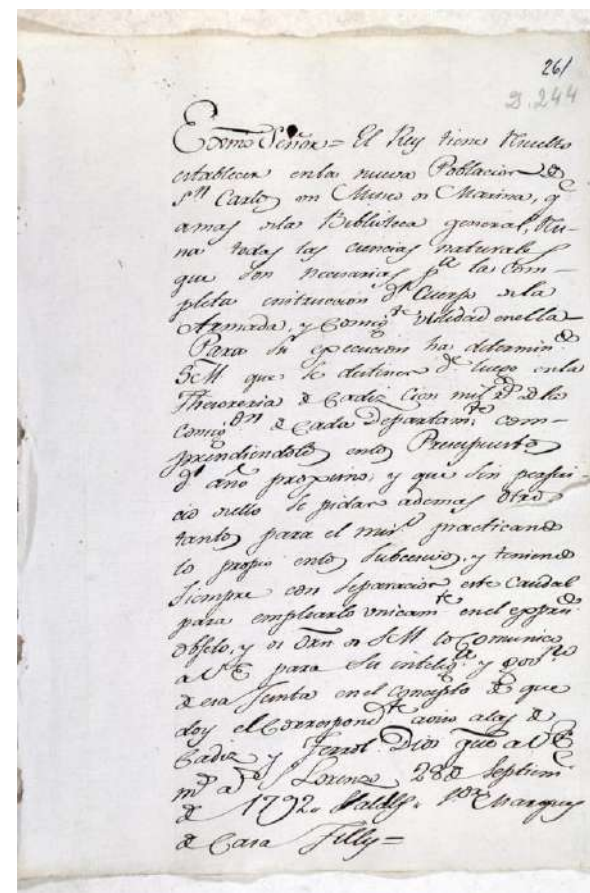 261
D. 244
Exmo Señor = El Rey tiene resuelto
establecer en la nueva Poblacion de
Sn Carlos un Museo de Marina, q
amas de la Biblioteca general, reu-
na todas las ciencias naturales
que son necesarias pa la com-
pleta instruccion del Cuerpo de la
Armada, y consigte utilidad en ella
Para su execucion ha determindo
S M que se destinen de luego en la
Thesoreria de Cadiz cien mil
de cada Departamto com-
prendiendolos en los Presupuestos
del año proximo; y que sin perjui
cio de ello se pidan ademas otros
tantos para el mismo practicando
lo propio en los subcesivos, y teniendo
siempre con separacion este caudal
para emplearlo unicamte en el expresdo
objeto, y de orn de S M lo comunico
a V E para su intelig y
de esa Junta en el concepto de que
doy el correspondte aviso a las de
Cadiz y Ferrol. Dios gue a V E
ms as Sn Lorenzo 28 de Septiem
de 1792 = Valdes = Sor Marques
de Casa Tilly =